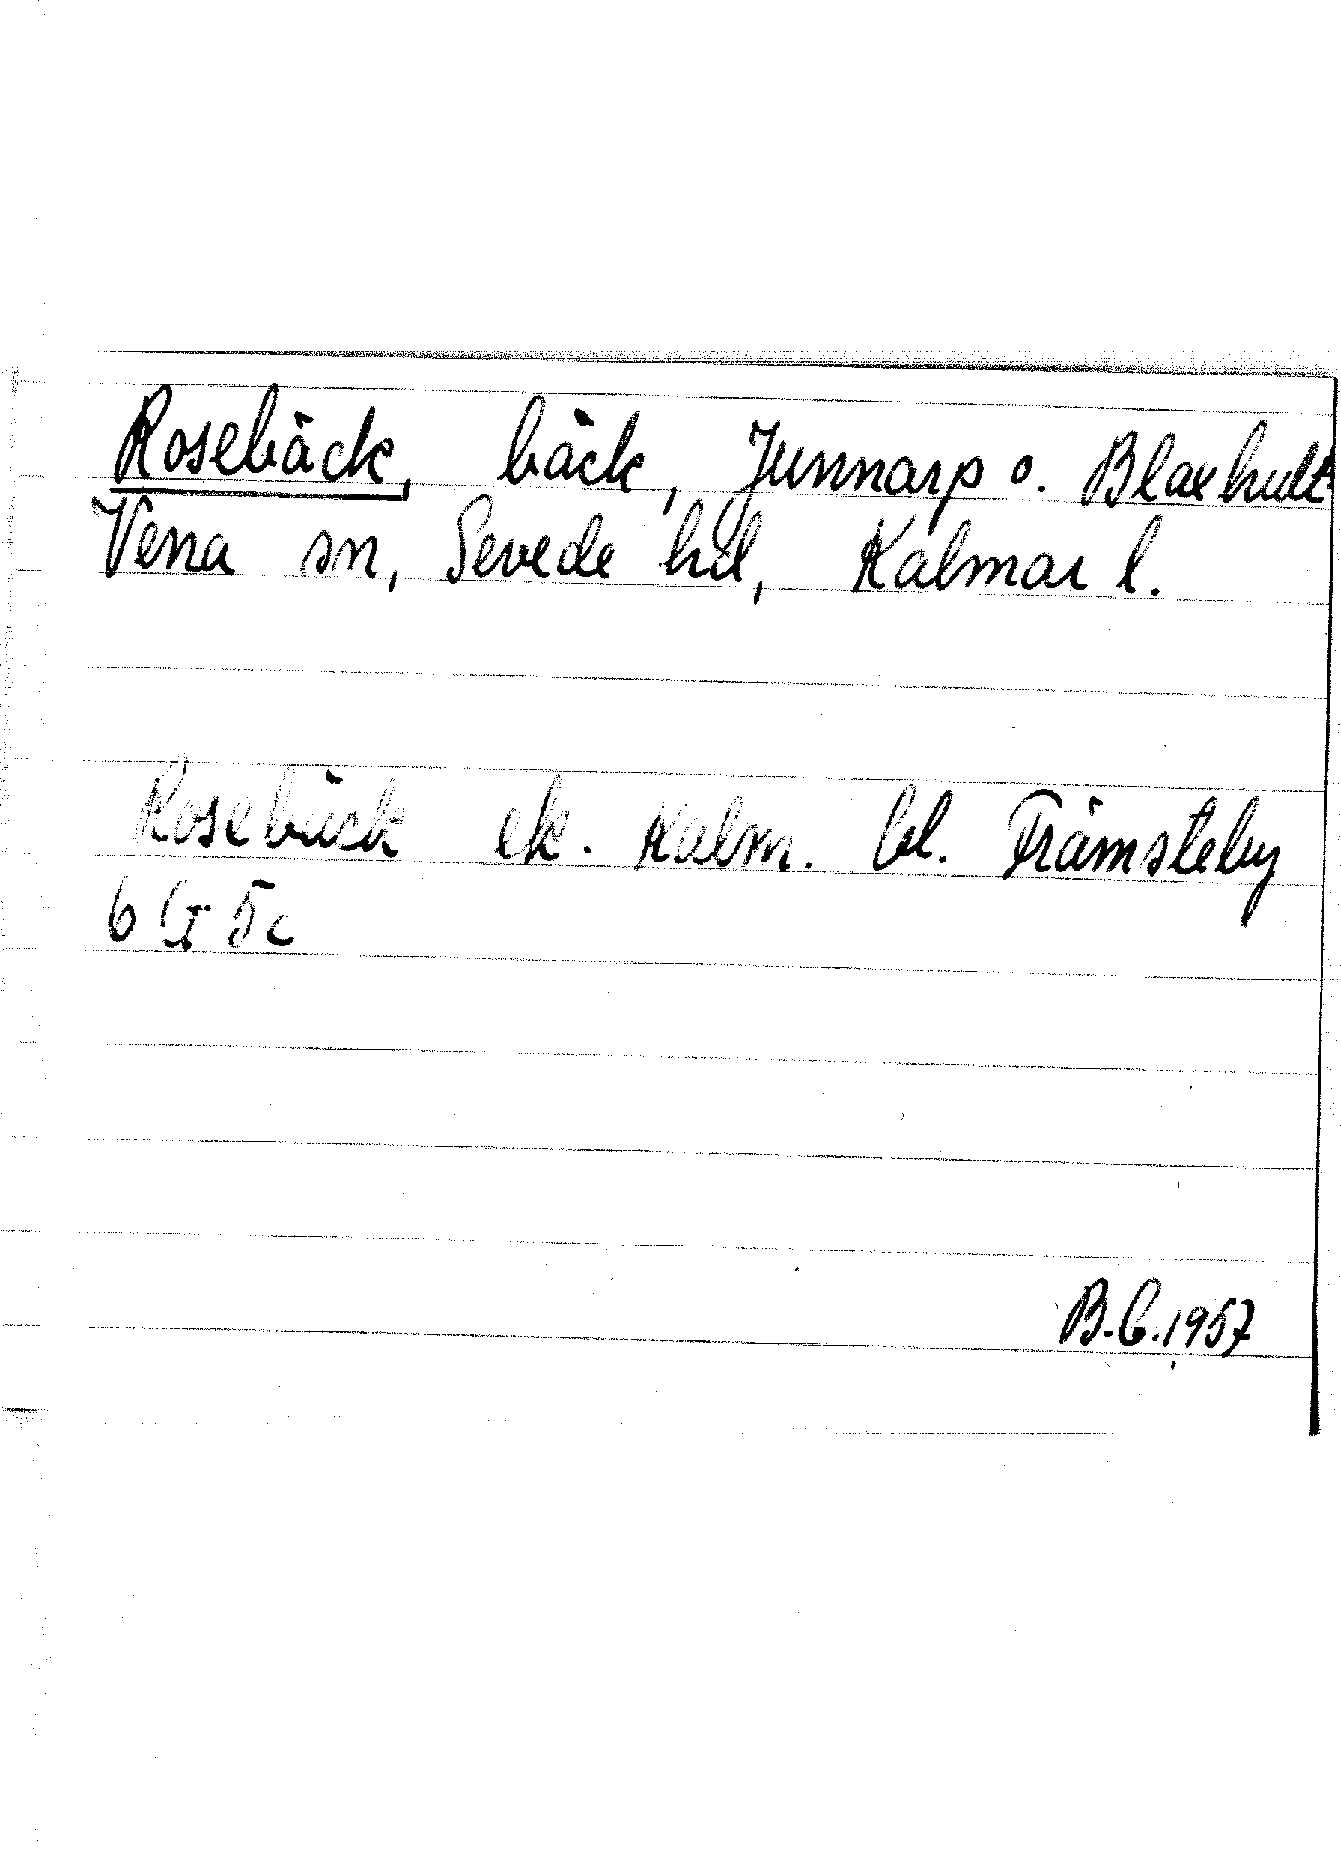 Rosebäck, bäck, Junnarp o. Blaxhult
Vena sn, Sevede hd, Kalmar l.
Rosebäck ek. Kalm. bl. Främsteby
6 G I 5c
B.C.1957